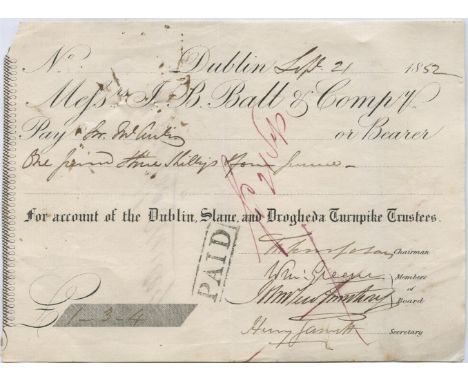 No. Dublin Sept 21 1852
Messrs J. B. Ball & Compy.
Pay Mr. or Bearer
One pound three Shillings & four pence
For account of the Dublin, Slane, and Drogheda Turnpike Trustees.
Thompson Chairman
Wm. Greene Members
of
Board
PAID
£1-3-4
Henry Secretary